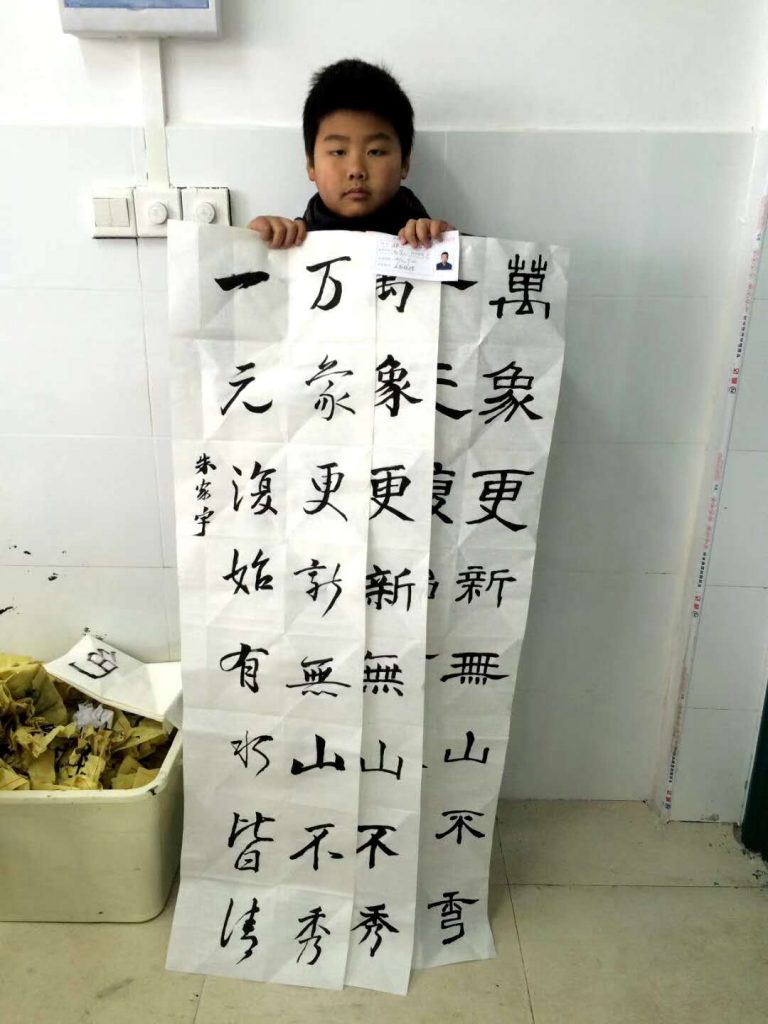 萬象更新無山不秀
一元復
萬象更新無山不秀
万象更新無山不秀
一元復始有水皆清
朱家宇